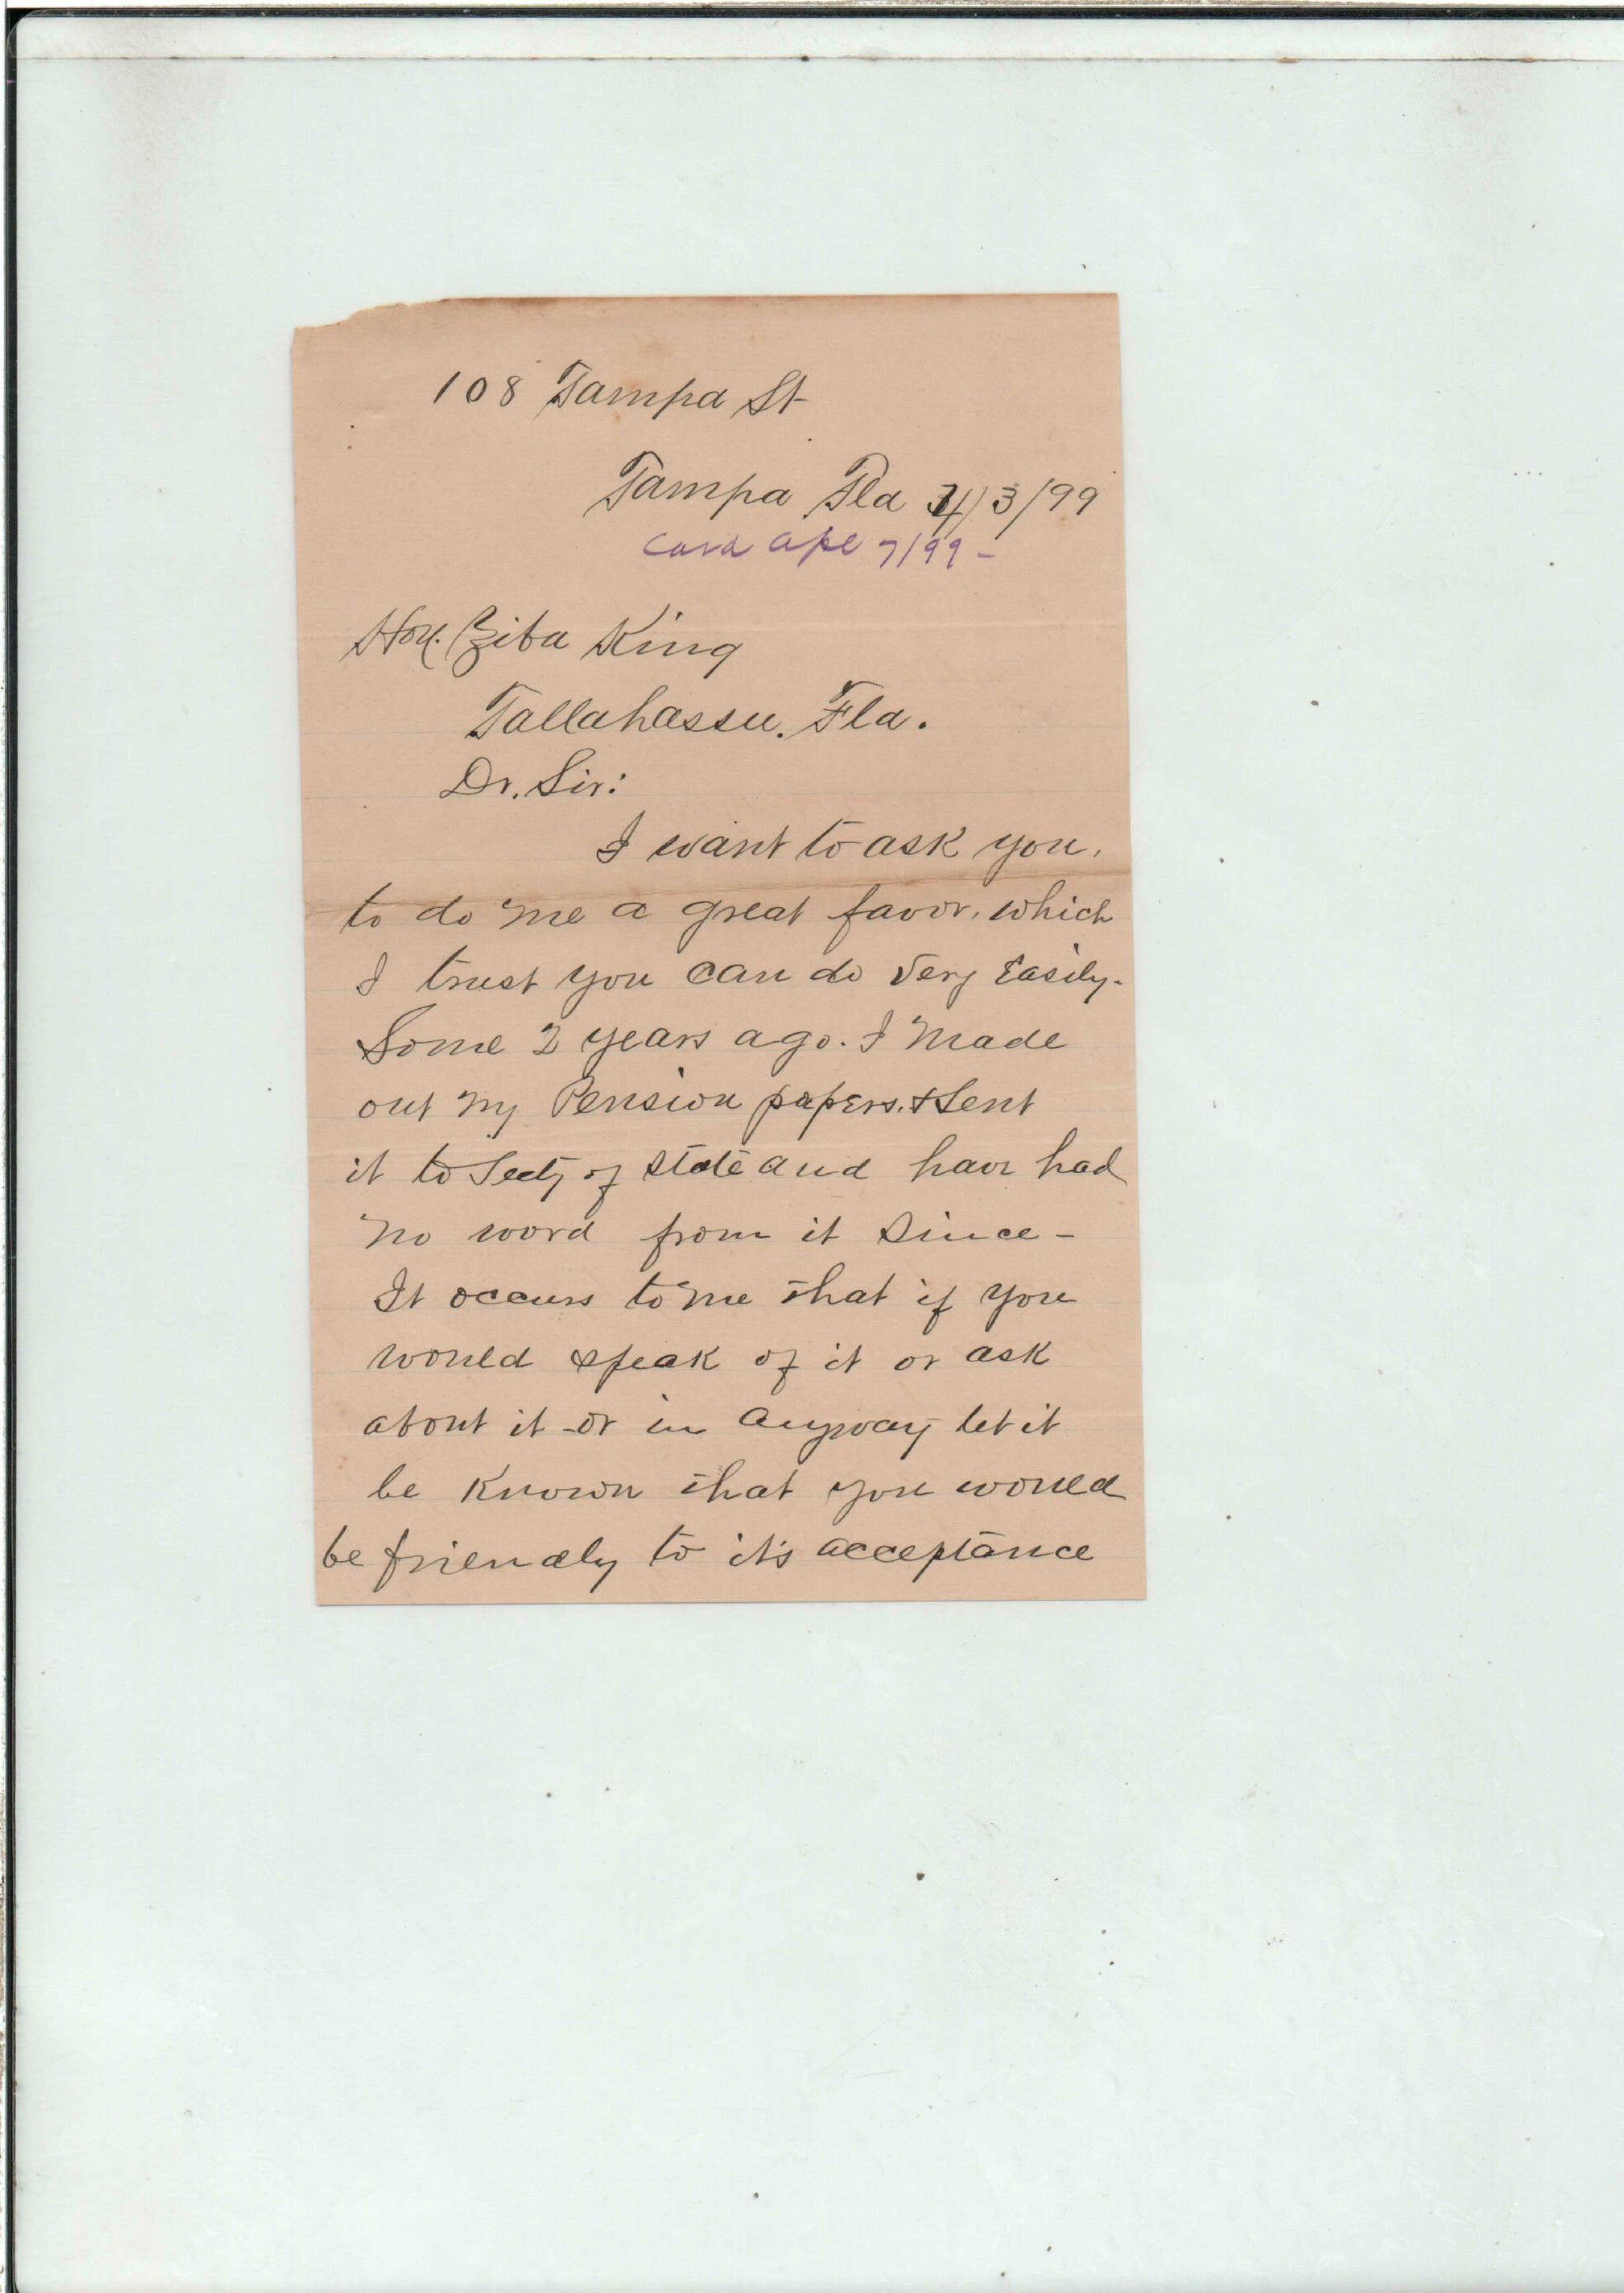 108 Tampa St
Tampa Fla 4/3/99
Card Apl 7/99 -
Hon. Ziba King
Tallahassee. Fla.
Dr. Sir:
I want to ask you,
to do me a great favor, which
I trust you can do very Easily-
Some 2 years ago. I made
out my Pension papers. & Sent
it to Secty of State and have had
no word from it Since -
It occurs to me that if you
would speak of it or ask
about it - or in anyway let it
be Known that you would
be friendly to it's acceptance